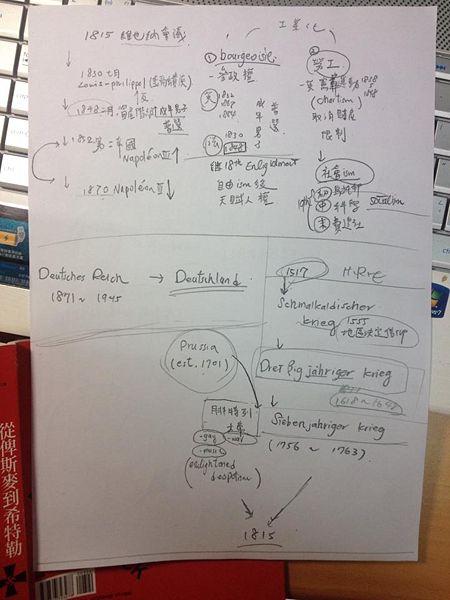 1815 維也納會議
↓ 1830 七月
Louis-philippe
↓ 1848 二月
成年男子
普選
↓ 1852 第二帝國
Napoléon III ↑
↓ 1870 Napoléon III ↓
工業化
① bourgeoisie
- 參政權
英 1832
1867
1884
成年男子
普選
法 1830
1848
繼18th Enlightment
自由ism
天賦人權
② 勞工
(Chartism)
取消財產
限制
社會ism
科學
費邊社
socialism
Deutsches Reich → Deutschland
1871 ~ 1945
1517 H.R.E
Schmalkaldischer
krieg 1555
地區決定信仰
Dreißigjähriger krieg
1618~1648
Prussia
(est. 1701)
腓特烈
大帝
- gay - war
- music
(enlightened
despotism)
Siebenjähriger krieg
(1756 ~ 1763)
1815
從俾斯麥到希特勒